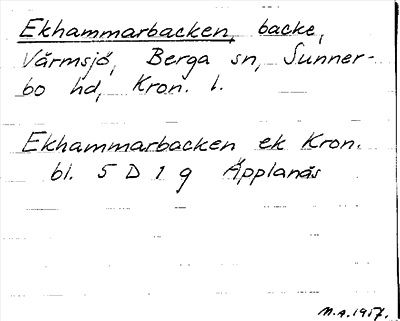 Ekhammarbacken, backe,
Värmsjö, Berga sn, Sunner-
bo hd, Kron. l.
Ekhammarbacken ek Kron.
bl. 5 D 1 g Äpplanäs
M.A. 1917.